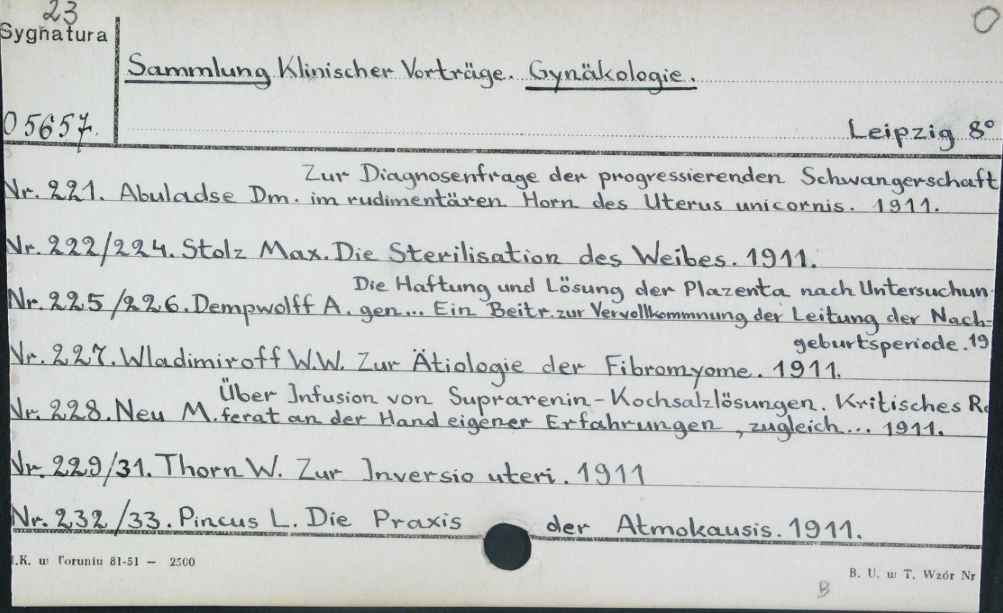 23
Sygnatura
Sammlung Klinischer Vorträge. Gynäkologie.
05657.
Leipzig 8°
Zur Diagnosenfrage der progressierenden Schwangerschaft
Nr. 221. Abuladse Dm. im rudimentären Horn des Uterus unicornis. 1911.
Nr. 222/224. Stolz Max. Die Sterilisation des Weibes. 1911.
Die Haftung und Lösung der Plazenta nach Untersuchun
Nr. 225/226. Dempwolff A. gen... Ein Beitr. zur Vervollkommnung der Leitung der Nach-
geburtsperiode. 19
Nr. 227. Wladimiroff W.W. Zur Ätiologie der Fibromyome. 1911.
Über Infusion von Suprarenin-Kochsalzlösungen. Kritisches Re
Nr. 228. Neu M. ferat an der Hand eigener Erfahrungen, zugleich... 1911.
Nr. 229/31. Thorn W. Zur Inversio uteri. 1911
Nr. 232/33. Pincus L. Die Praxis der Atmokausis. 1911.
I.K. w Toruniu 81-51 — 2500
B. U. w T. Wzór Nr
B